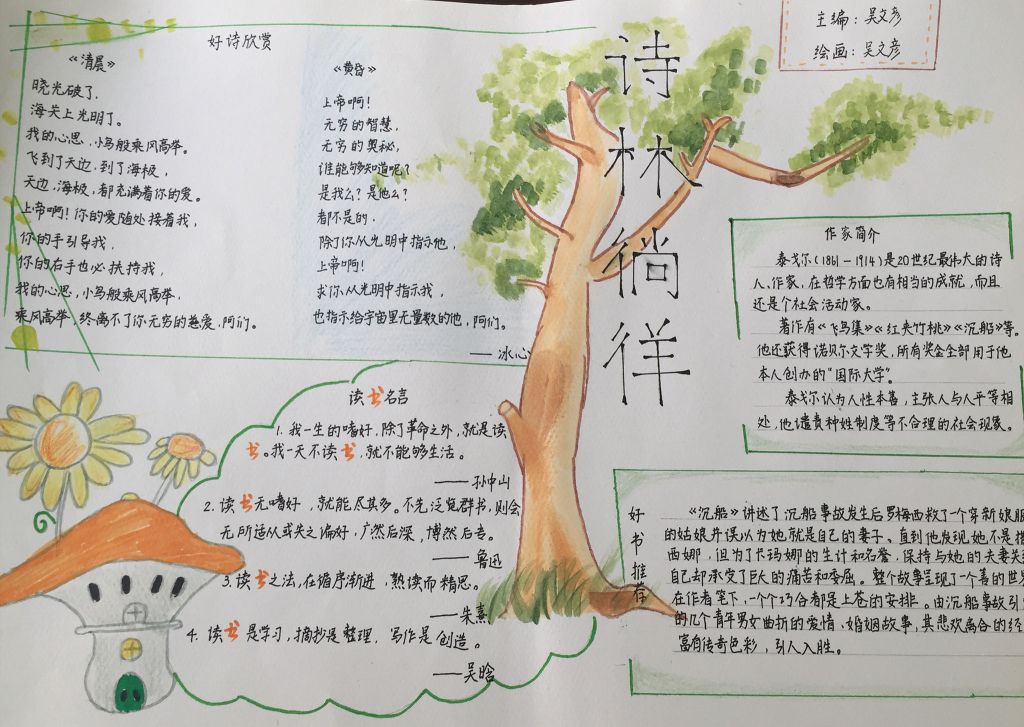 诗林徜徉
主编：吴文彦
绘画：吴文彦
好诗欣赏
《清晨》
晓光破了，
海关上光明了。
我的心思，小鸟般乘风高举。
飞到了天边，到了海极，
天边，海极，都充满着你的爱。
上帝啊！你的爱随处接着我，
你的手引导我，
你的右手也必扶持我，
我的心思，小鸟般乘风高举，
乘风高举，终离不了你无穷的慈爱，阿们。
《黄昏》
上帝啊！
无穷的智慧，
无穷的奥秘，
谁能够知道呢？
是我么？是他么？
都不是的，
除了你从光明中指示他，
上帝啊！
求你从光明中指示我，
也指示给宇宙里无量数的他，阿们。
——冰心
读书名言
1. 我一生的嗜好，除了革命之外，就是读
书。我一天不读书，就不能够生活。
——孙中山
2. 读书无嗜好，就能尽其多。不先泛览群书，则会
无所适从或失之偏好，广然后深，博然后专。
——鲁迅
3. 读书之法，在循序渐进，熟读而精思。
——朱熹
4. 读书是学习，摘抄是整理，写作是创造。
——吴晗
作家简介
泰戈尔（1861—1914）是20世纪最伟大的诗
人、作家，在哲学方面也有相当的成就，而且
还是个社会活动家。
著作有《飞鸟集》《红夹竹桃》《沉船》等。
他还获得诺贝尔文学奖，所有奖金全部用于他
本人创办的“国际大学”。
泰戈尔认为人性本善，主张人与人平等相
处，他谴责种姓制度等不合理的社会现象。
好书推荐
《沉船》讲述了沉船事故发生后罗梅西救了一个穿新娘服
的姑娘并误以为她就是自己的妻子。直到他发现她不是
西娜，但为了卡玛娜的生计和名誉，保持与她的夫妻关
自己却承受了巨大的痛苦和委屈。整个故事呈现了一个善的世
在作者笔下，一个个巧合都是上苍的安排。由沉船事故引
的几个青年男女曲折的爱情、婚姻故事，其悲欢离合的经
富有传奇色彩，引人入胜。